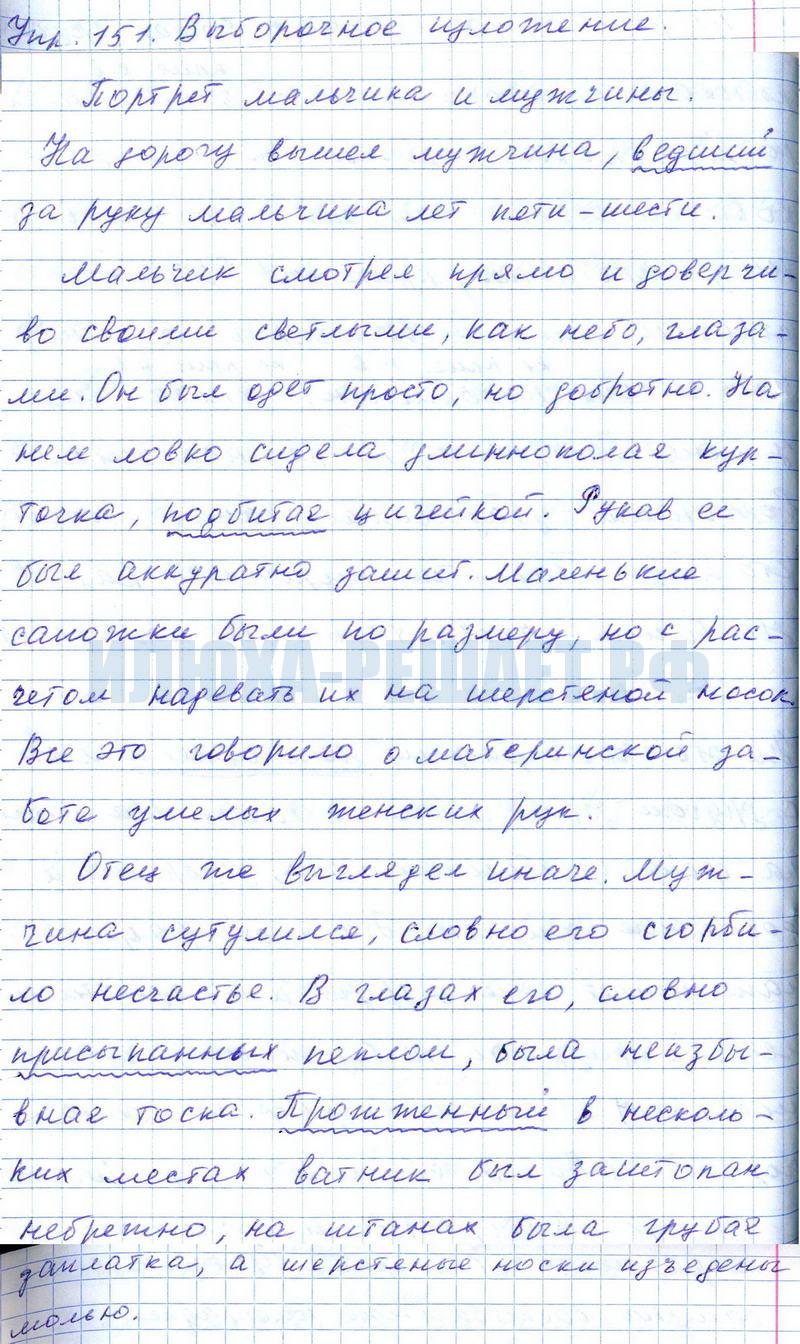 Упр. 151. Выборочное изложение.
Портрет мальчика и мужчины.
На дорогу вышел мужчина, ведший
за руку мальчика лет пяти-шести.
Мальчик смотрел прямо и доверчи-
во своими светлыми, как небо, глаза-
ми. Он был одет просто, но добротно. На
нем ловко сидела длиннополая кур-
точка, подбитая цигейкой. Рукав ее
был аккуратно зашит. Маленькие
сапожки были по размеру, но с рас-
четом надевать их на шерстяной носок.
ИЛЮХА-РЕШАЕТ.РФ
Все это говорило о материнской за-
боте умелых женских рук.
Отец же выглядел иначе. Муж-
чина сутулился, словно его сгорби-
ло несчастье. В глазах его, словно
присыпанных пеплом, была неизбы-
вная тоска. Прожженный в несколь-
ких местах ватник был заштопан
небрежно, на штанах была грубая
заплатка, а шерстяные носки изъедены
молью.